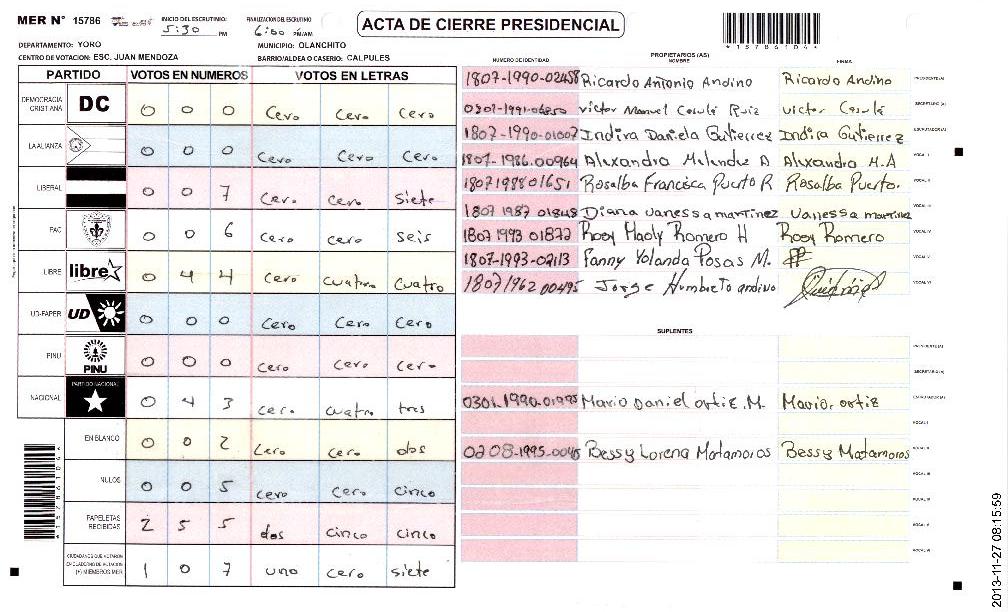 MER Nº 15786
INICIO DEL ESCRUTINIO
5:30 PM
FINALIZACION DEL ESCRUTINIO
6:00 PM/AM
ACTA DE CIERRE PRESIDENCIAL
*15786104*
DEPARTAMENTO: YORO
MUNICIPIO: OLANCHITO
CENTRO DE VOTACION: ESC. JUAN MENDOZA
BARRIO/ALDEA O CASERIO: CALPULES
PARTIDO VOTOS EN NUMEROS VOTOS EN LETRAS
DEMOCRACIA CRISTIANA DC 0 0 0 Cero Cero Cero
LA ALIANZA 0 0 0 Cero Cero Cero
LIBERAL 0 0 7 Cero Cero Siete
PAC 0 0 6 Cero cero seis
LIBRE libre 0 4 4 Cero Cuatro Cuatro
UD-FAPER UD 0 0 0 Cero Cero Cero
PINU PINU 0 0 0 Cero Cero Cero
NACIONAL PARTIDO NACIONAL 0 4 3 cero cuatro tres
EN BLANCO 0 0 2 Cero cero dos
NULOS 0 0 5 cero cero cinco
PAPELETAS RECIBIDAS 2 5 5 dos cinco cinco
CIUDADANOS QUE VOTARON EN CUADERNO DE VOTACION (+) MIEMBROS MER 1 0 7 uno cero siete
PROPIETARIOS (AS)
NUMERO DE IDENTIDAD NOMBRE FIRMA
1807-1990-02458 Ricardo Antonio Andino Ricardo Andino PRESIDENTE(A)
0301-1991-06850 victor Manuel Ruiz victor SECRETARIO (A)
1807-1990-01007 Indira Daniela Gutierrez Indira Gutierrez ESCRUTADOR (A)
1807-1986-00964 Alexandra Melendez A Alexandra M.A VOCAL I
1807198801651 Rosalba Francisca Puerto R Rosalba Puerto. VOCAL II
1807 1987 01848 Diana vanessa martinez vanessa martinez VOCAL III
1807 1993 01872 Rosy Romero H Rosy Romero VOCAL IV
1807-1993-02113 Fanny Yolanda Posas M. VOCAL V
1807 1962 00495 Jorge Humberto andino VOCAL VI
SUPLENTES
PRESIDENTE(A)
SECRETARIO (A)
0301-1990-01995 Mario Daniel ortiz .M. Mario. ortiz ESCRUTADOR (A)
VOCAL I
0208-1995- Bessy Lorena Matamoros Bessy Matamoros VOCAL II
VOCAL III
VOCAL IV
VOCAL V
VOCAL VI
*15786104*
2013-11-27 08:15:59